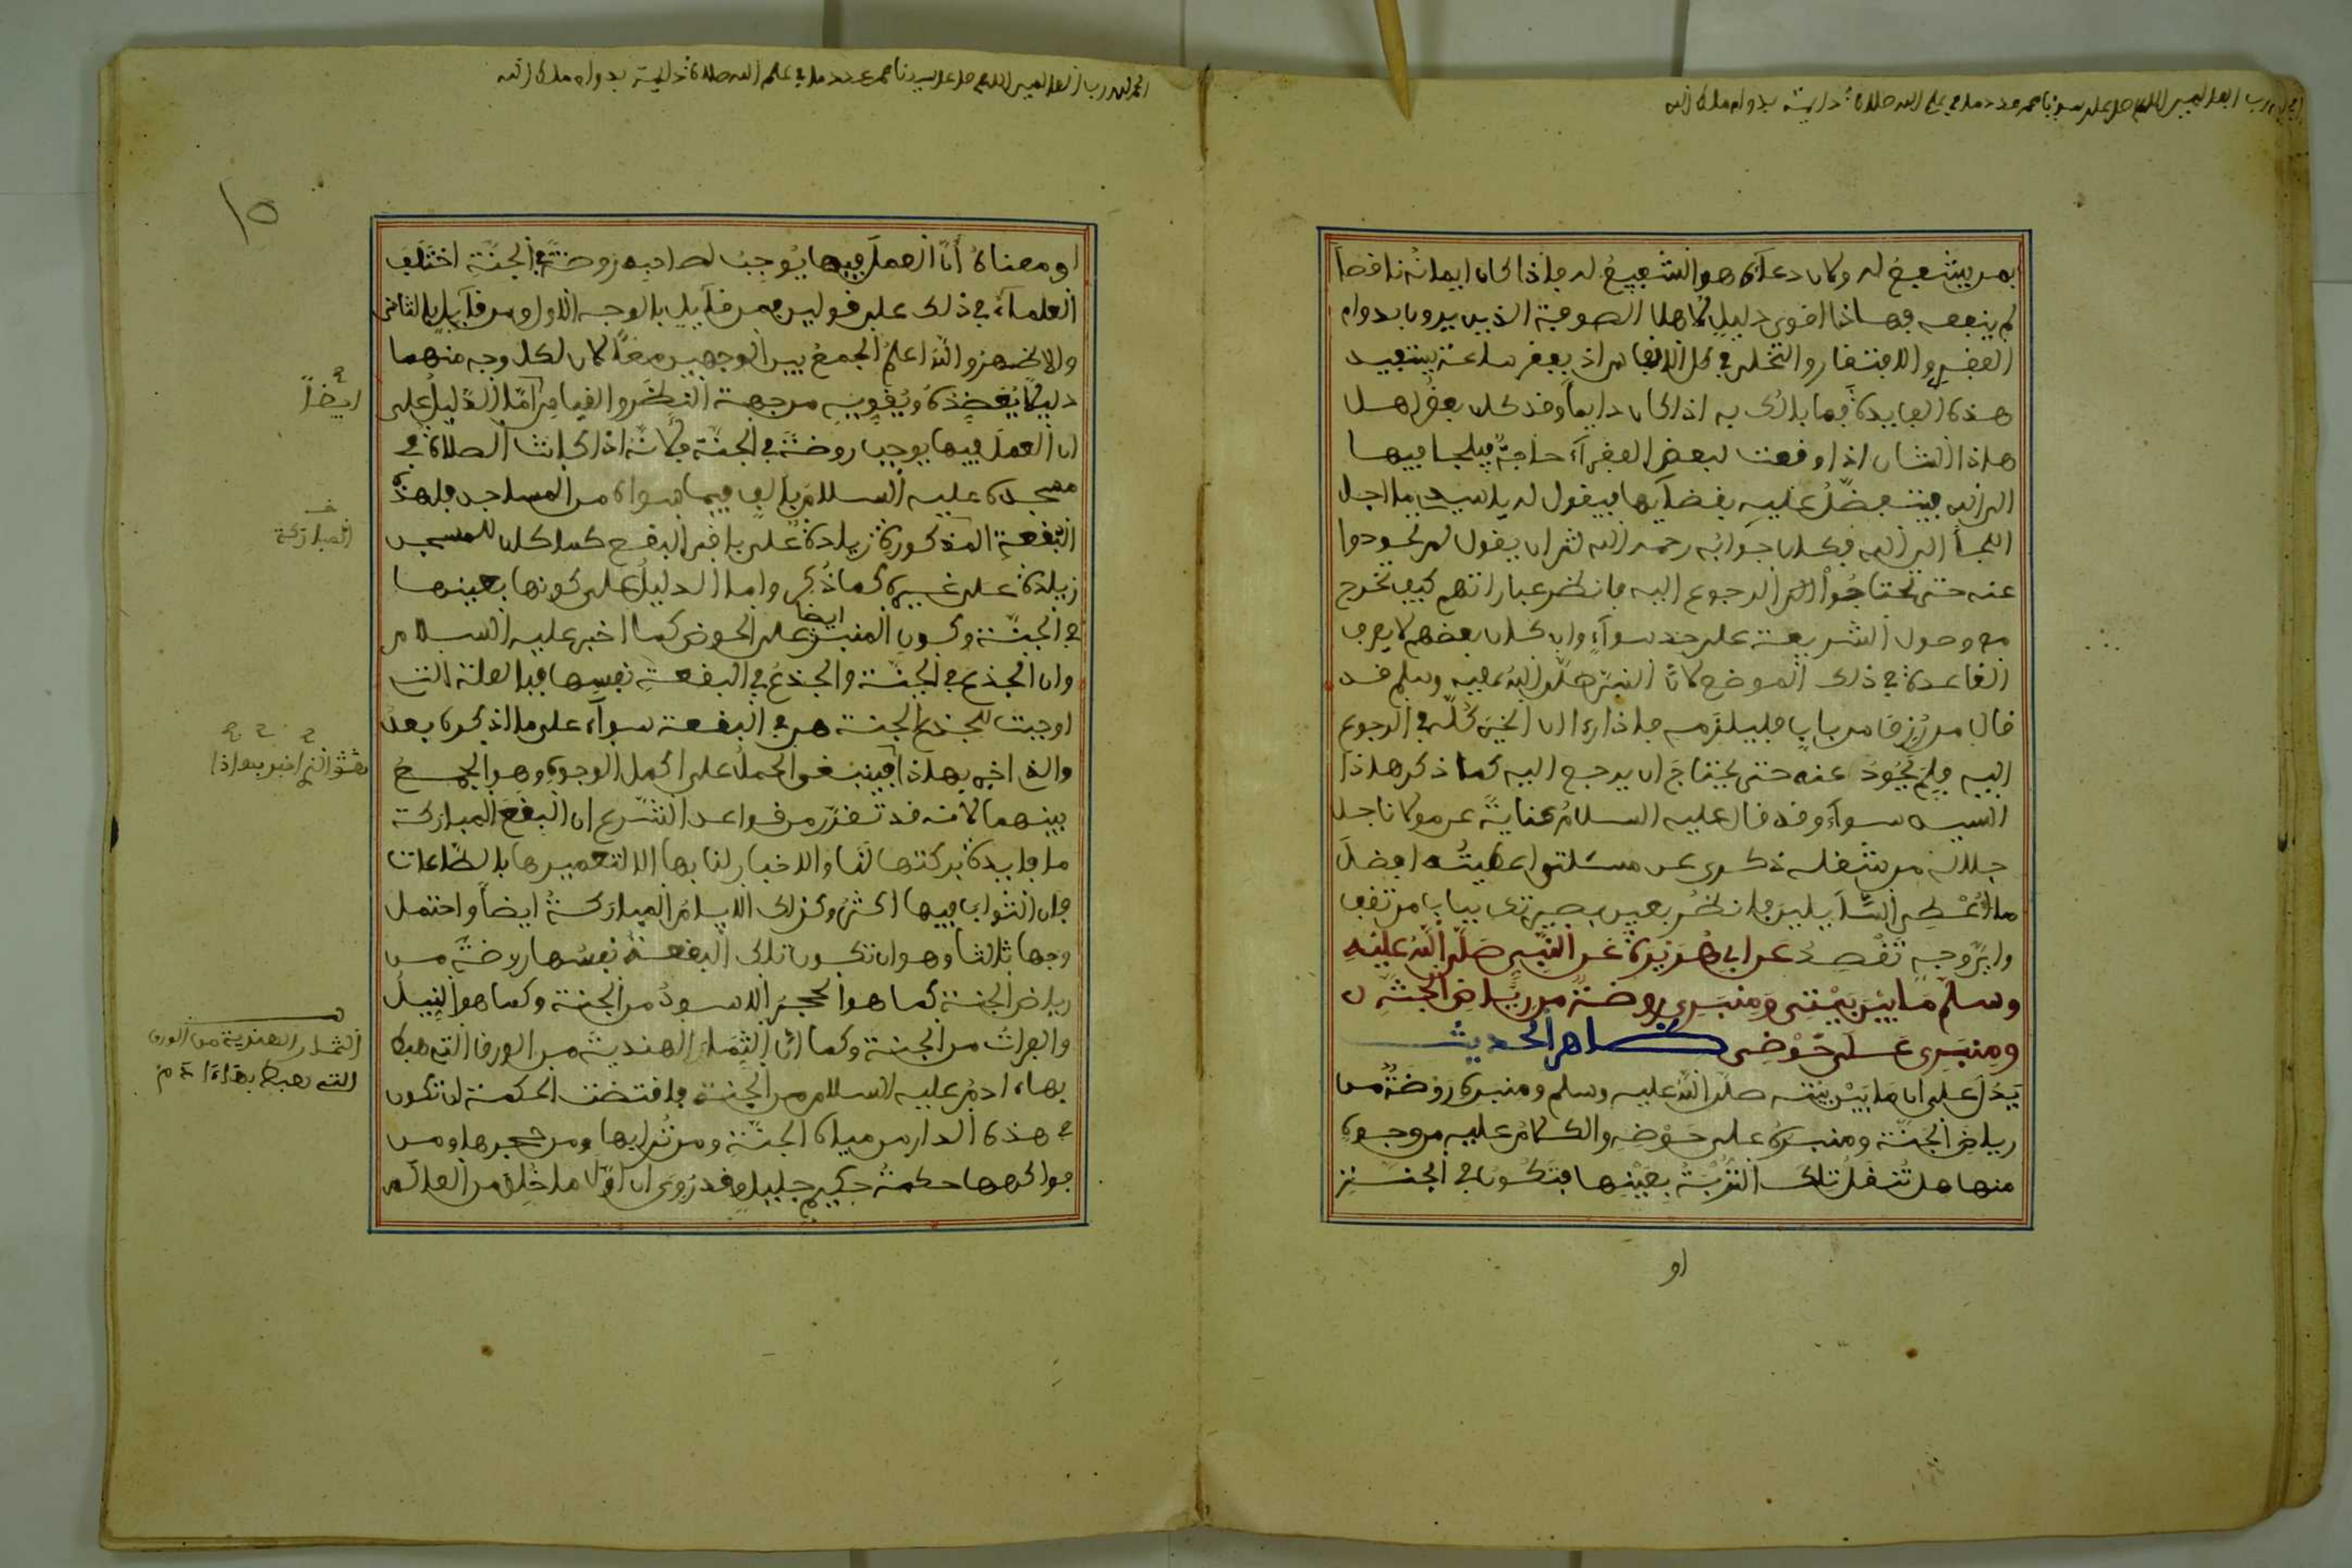 الحمد لله رب العالمين اللهم صل على سيدنا محمد عدد ما في علم الله صلاة دايمة بدوام ملك الله
بمن يشفع له وكان دعاؤه هو الشفيع له فاذا كان ايمانه ناقصا
لم ينفعه وهاذا اقوى دليل لاهل الصوفية الذين يرون بدوام
الفقر والافتقار والتخلي في كل الانفاس اذ بفقر ساعة يستفيد
هذه الفايدة فما بالك به اذا كان دايما وقد كان بعض اهل
هاذا الشان اذا وقعت لبعض الفقراء حاجة فيلجا فيها
الى الله فيتفضل عليه بقضايها فيقول له يا سيدي ما اجل
اللجأ الى الله فكان جوابه رحمه الله لقران يقول لم تحودوا
عنه حتى تحتاجوا الى الرجوع اليه فانظر عباراتهم كيف تخرج
مع وصول الشريعة على حد سواء وان كان بعضهم لا يعرف
القاعدة في ذلك الموضع لان النبي صلى الله عليه وسلم قد
قال من رزق من باب فليلزمه فاذا رءا ان الخير كله في الرجوع
اليه فلم يحود عنه حتى يحتاج ان يرجع اليه كما ذكر هاذا
السيد سواء وقد قال عليه السلام عناية عن مولانا جل
جلاله من شغله ذكري عن مسئلتي اعطيته افضل
ما اعطي السايلين فانظر بعين بصيرتك بباب من تقف
واي وجه تقصد عن ابي هريرة عن النبي صلى الله عليه
وسلم ما بين بيتي ومنبري روضة من رياض الجنة
ومنبري على حوضي ظاهر الحديث
يدل على ان ما بين بيته صلى الله عليه وسلم ومنبره روضة من
رياض الجنة ومنبره على حوضه والكلام عليه من وجوه
منها هل تنقل تلك التربة بعينها فتكون في الجنة
او
الحمد لله رب العالمين اللهم صل على سيدنا محمد عدد ما في علم الله صلاة دايمة بدوام ملك الله
١٥
او معناه أن العمل فيها يوجب لصاحبه روضة في الجنة اختلف
العلماء في ذلك على قولين فمن قايل بالوجه الاول ومن قايل بالثاني
والاظهر والله اعلم الجمع بين الوجهين معا لان لكل وجه منهما
دليلا يعضده ويقويه من جهة النظر والقياس اما الدليل على
ان العمل فيها يوجب روضة في الجنة فلانه اذا كانت الصلاة في
مسجده عليه السلام بالف فيما سواه من المساجد فلهذه
البقعة المذكورة زيادة على باقي البقع كما كان للمسجد
زيادة على غيره كما ذكر واما الدليل على كونها بعينها
في الجنة وكون المنبر ايضا على الحوض كما اخبر عليه السلام
وان الجذع في الجنة والجذع في البقعة نفسها فبالعلة التي
اوجبت للجذع الجنة هي في البقعة سواء على ما اذكره بعد
والذي اخبر بهاذا فينبغي الحمل على اكمل الوجوه وهو الجمع
بينهما لانه قد تقرر من قواعد الشرع ان البقع المباركة
ما فايدة بركتها لنا والاخبار لنا بها الا لتعميرها بالطاعات
فان الثواب فيها اكثر وكذلك الايام المباركة ايضا واحتمل
وجها ثالثا وهو ان تكون تلك البقعة نفسها روضة من
رياض الجنة كما هو الحجر الاسود من الجنة وكما هو النيل
والفرات من الجنة وكما ان الثمار الهندية من الورق التي هبط
بها ءادم عليه السلام من الجنة فاقتضت الحكمة ان تكون
في هذه الدار من مياه الجنة ومن ترابها ومن حجرها ومن
فواكهها حكمة حكيم جليل وقد روي ان اول ما خلق من العالم
ايضا
المباركة
الثمار الهندية من الورق
التي هبط بها ءادم